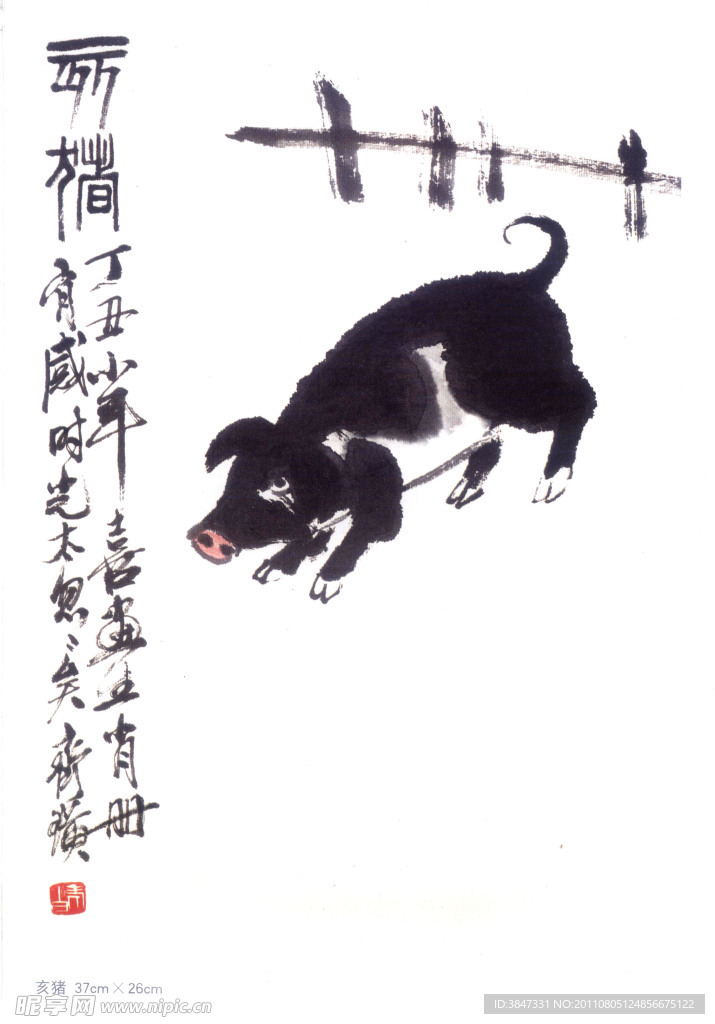 亥猪
丁丑小年喜畫生肖册
有感时光太怱〻矣
亥猪 37cm×26cm
昵享网 www.nipic.cn
ID:3847331 NO:20110805124856675122